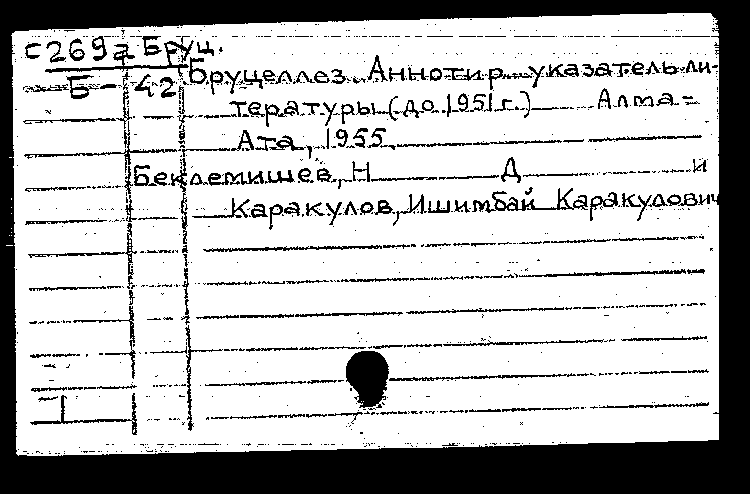 С269а Бруц.
Б-42 Бруцеллез. Аннотир. указатель ли-
тературы (до 1951 г.) Алма-
Ата, 1955.
Беклемишев, Н Д и
Каракулов, Ишимбай Каракулович